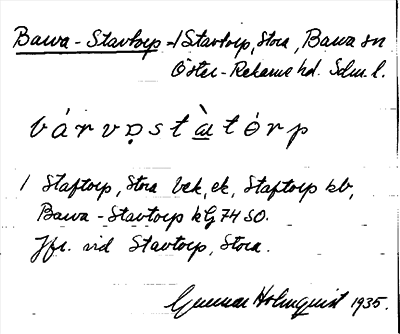 Bawa-Stavtorp /Stavtorp, Stora, Bawa sn
Öster-Rekarne hd. Sdm. l.
bárvọstàtórp
/ Staftorp, Stora bek, ek, Staftorp kb,
Bawa-Stavtorp kG 74 SO.
Jfr. vid Stavtorp, Stora.
Gunnar Holmquist 1935.